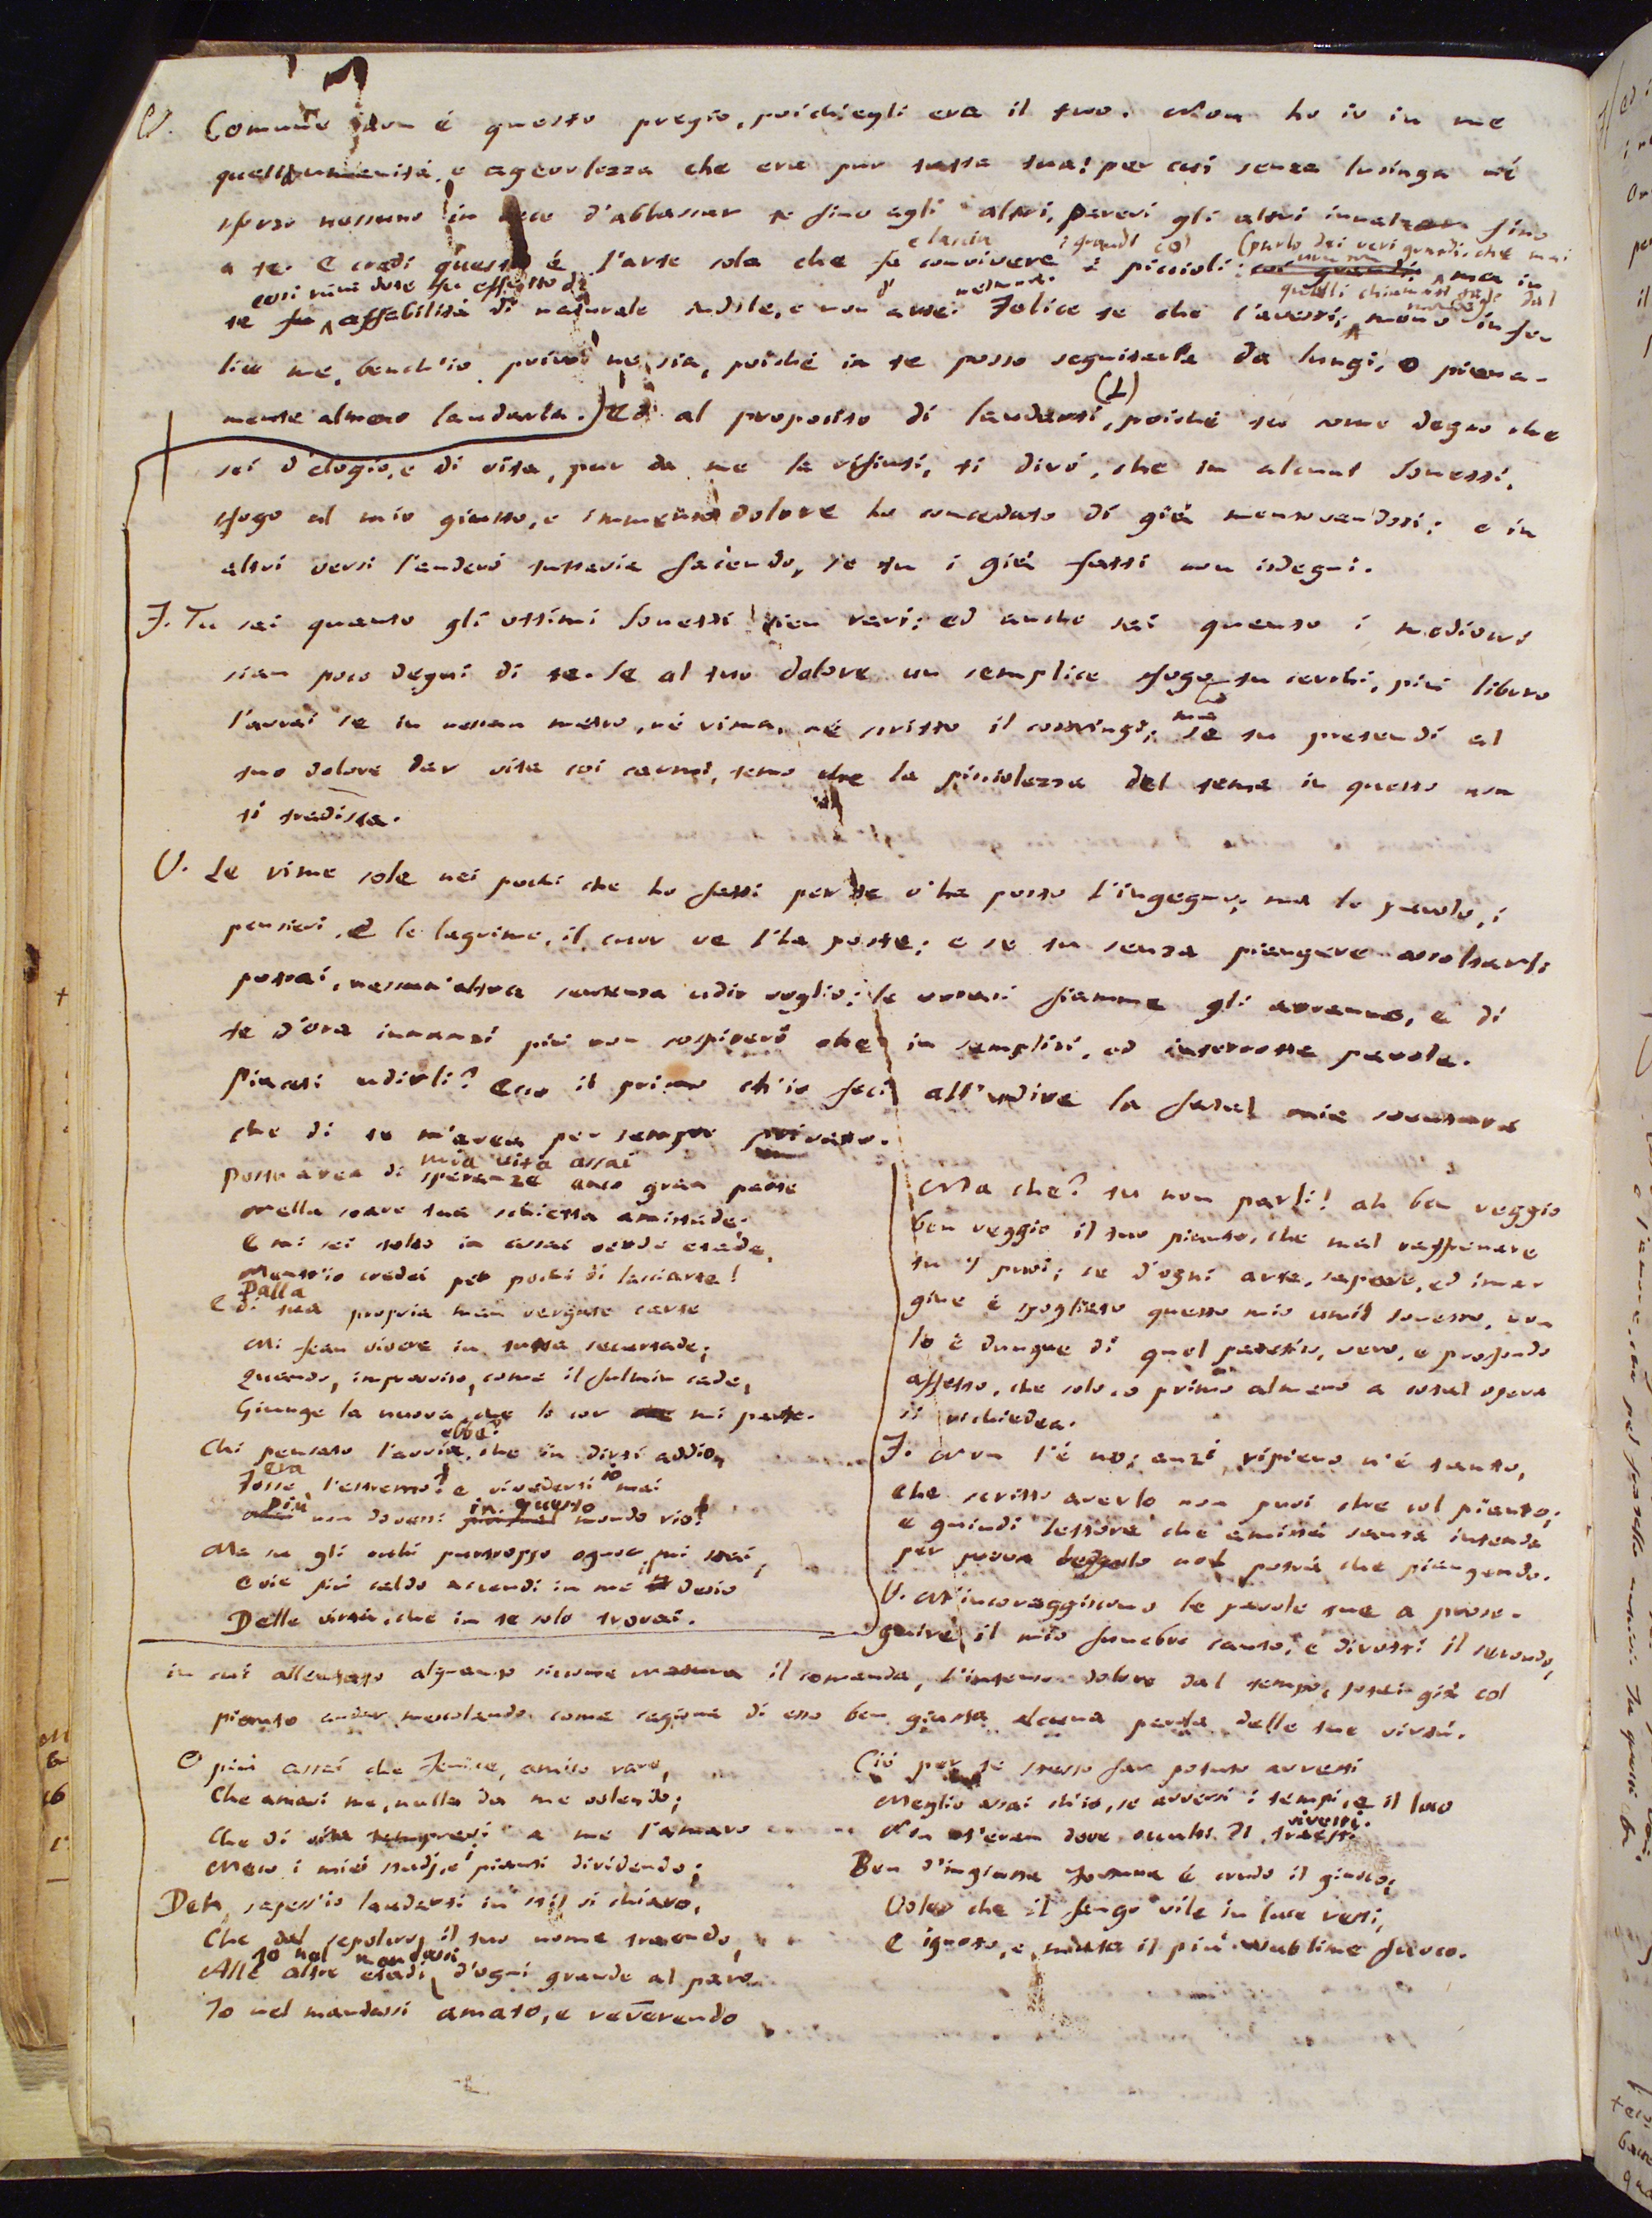 V. Comune non è questo pregio, poich'egli era il tuo. Non ho io in me
quell'umanità, e agevolezza che era pur tutta tua! per cui senza lusinga né
sforzo nessuno in vece d'abbassar te fino agli altri, parevi gli altri innalzar fino
e lascia i grandi coi (parlo dei veri grandi, che mai
a te. E credi questa è l'arte sola che fa convivere i piccioli coi grandi ma in
così rara dote fu effetto di d' nessuna quelli chiamar
te fu affabilità di naturale indole, e non arte. Felice te che l'avesti, meno infe-
lice me, bench'io privo ne sia, poiché in te posso seguitarla da lungi, o piena-
mente almeno laudarla. Ed al proposito di laudarti, (1) poiché tu come degno che
sei d'elogio, e di vita, pur da me la rifiuti, ti dirò, che in alcuni sonetti,
sfogo al mio giusto, e immenso dolore ho conceduto di già mentovandoti: e in
altri versi l'anderò tuttavia facendo, se tu i già fatti non isdegni.
F. Tu sai quanto gli ottimi sonetti sien rari: ed anche sai quanto i mediocri
sian poco degni di te. Se al tuo dolore un semplice sfogo tu cerchi, più libero
l'avrai se in nessun metro, né rima, né scritto il costringi; ma se tu pretendi al
tuo dolore dar vita coi carmi, temo che la picciolezza del tema in questo non
ti tradisca.
V. Le rime sole nei pochi che ho fatti per te v'ha posto l'ingegno; ma le parole, i
pensieri, e le lagrime, il cuor ve l'ha poste; e se tu senza piangere ascoltarli
potrai, nessun'altra sentenza udir voglio: le voraci fiamme gli avranno, e di
te d'ora innanzi più non sospirerò che in semplici, ed interrotte parole.
Piaceti udirli? Ecco il primo ch'io feci all'udire la fatal mia sventura
che di te m'avea per sempre privato.
mia vita assai
Posto avea di speranze anco gran parte
Nella soave tua schietta amistade.
E mi sei tolto in assai verde etade,
Mentr'io credei per pochi dì lasciarte!
Dalla
E di tua propria man vergate carte
Mi fean vivere in tutta securtade;
Quando, improvviso, come il fulmin cade,
Giunge la nuova, che lo cor mi parte.
ebbe?
Chi pensato l'avria, che in dirsi addio,
era
Fosse l'estremo? e rivederti io mai
Più in questo
non dovessi mondo rio?
Ma su gli occhi purtroppo ognor mi stai,
E vie più caldo accendi in me il desio
Delle virtù, che in te solo trovai.
Ma che? tu non parli! ah ben veggio
ben veggio il tuo pianto, che mal raffrenare
tu puoi; se d'ogni arte, sapere, ed imma-
gine è spogliato questo mio umil sonetto, non
lo è dunque di quel patetico, vero, e profondo
affetto, che solo, o primo almeno a cotal opera
si richiedea.
F. Non l'è no; anzi ripieno n'è tanto,
che scritto averlo non puoi che col pianto;
e quindi lettore che amistà senta intenda
per prova leggerlo non potrà che piangendo.
V. M'incoraggiscono le parole tue a prose-
guire il mio funebre canto, e dirotti il secondo,
in cui allentato alquanto siccome natura il comanda, l'intenso dolore dal tempo, potei già col
pianto andar mescolando come cagione di esso ben giusta alcuna parte delle tue virtù.
O più assai che Fenice, amico raro,
Che amasi me, nulla da me volendo;
Che di a me l'amaro
Meco i miei studj, e i pianti dividendo;
Deh, sapess'io laudarti in stil sì chiaro,
Che dal sepolcro il tuo nome traendo,
Io nel mandassi
Alle altre etadi d'ogni grande al paro
Io nel mandassi amato, e reverendo
Ciò per te stesso far potuto avresti
Meglio assai ch'io, se avversi i tempi, e il loco
vivesti.
Non t'eran dove occulti dì
Ben d'ingiusta fortuna è crudo il giuoco;
Voler che il fango vile in luce resti,
E ignoto, e muto il più sublime fuoco.